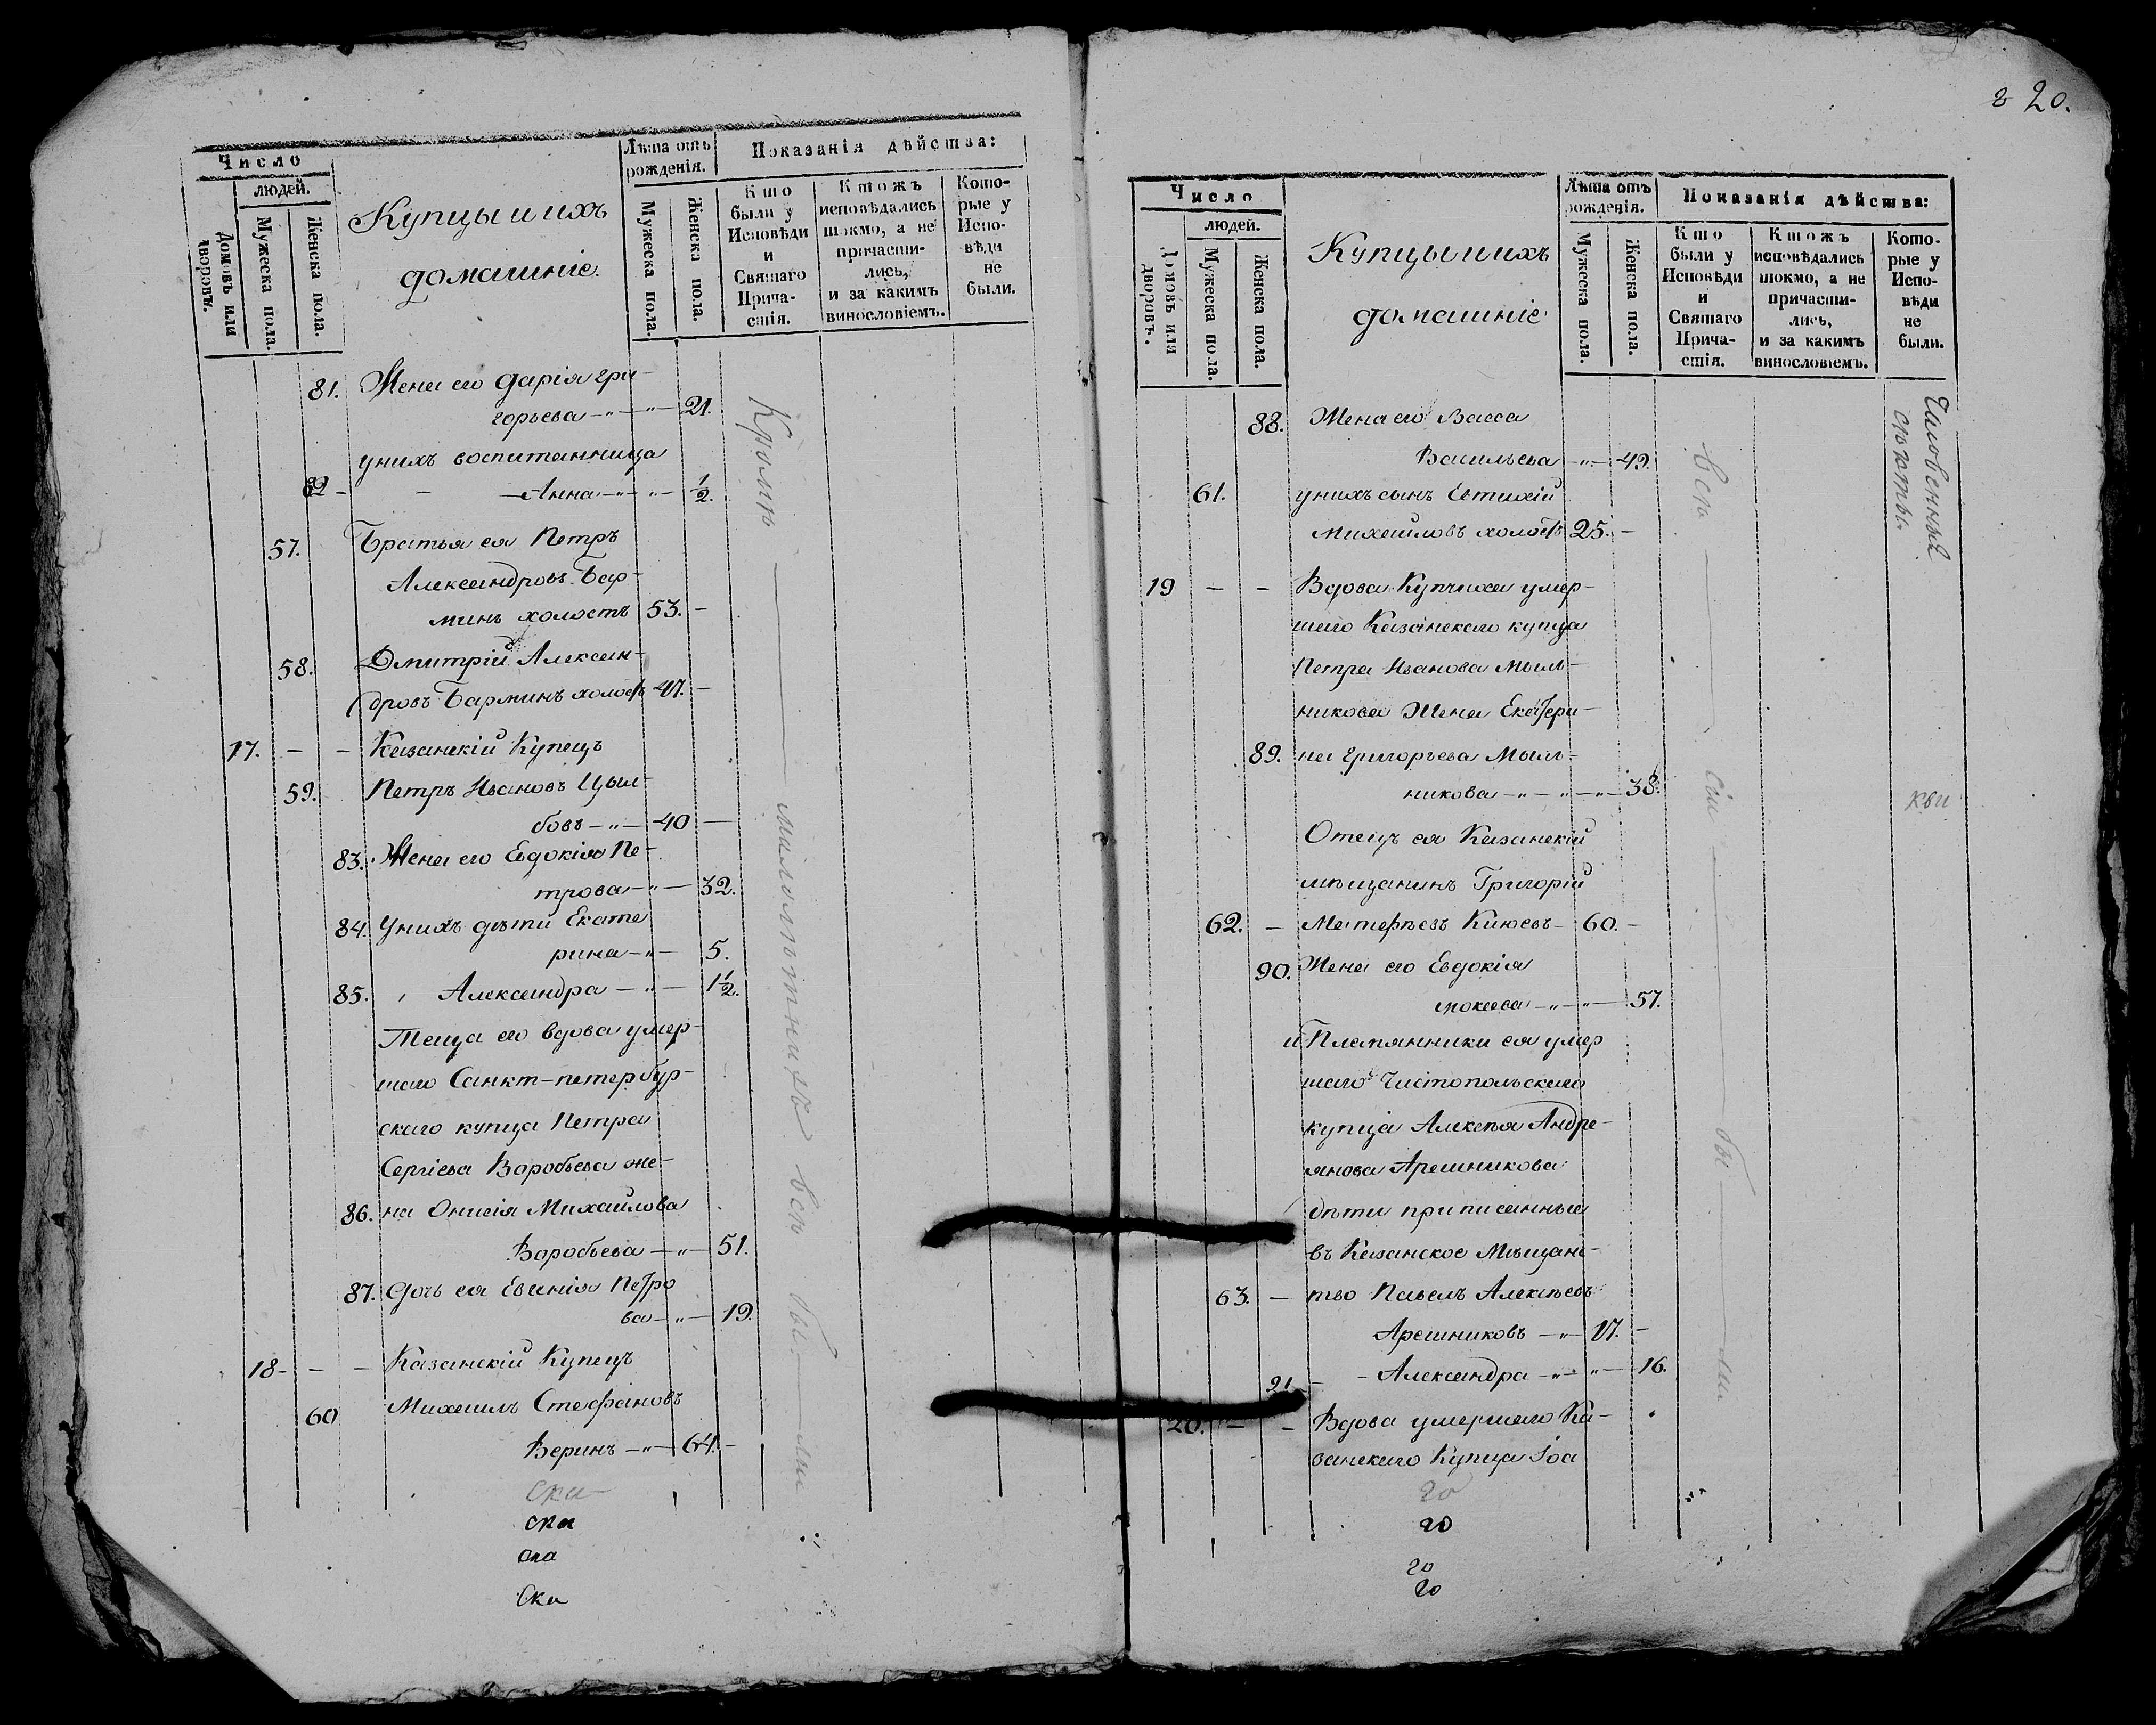 Число
людей.
Домовъ или дворовъ.
Мужеска пола.
Женска пола.
Купцы и ихъ
домашніе.
Лѣта отъ
рожденія.
Мужеска пола.
Женска пола.
Показанія дѣйства:
Кто
были у
Исповѣди
и
Святаго
Прича-
стія.
Ктожъ
исповѣдались
токмо, а не
причасти-
лись,
и за какимъ
винословіемъ.
Кото-
рые у
Испо-
вѣди
не
были.
81. Жена его Дарія Гри-
горьева -"- -"- 21.
у нихъ воспитанница
82 - - - Анна -"- -"- ½.
57. Братья ея Петръ
Александровъ Бар-
минъ холостъ 53. -
58. Дмитрій Алексан-
дровъ Барминъ холостъ 47. -
17. - - Казанскій Купецъ
59. Петръ Ивановъ Цыл-
бовъ -"- 40 -
83. Жена его Евдокія Пе-
трова -"- 32.
84. У нихъ дѣти Екате
рина -"- 5.
85. Александра -"- 1½.
Теща его вдова умер-
шаго Санкт-петербур-
скаго купца Петра
Сергіева Воробьева же-
86. на Онисія Михайлова
Воробьева -"- 51.
87. Дочь ея Евгенія Петро
ва -"- 19.
18 - - - Казанскій Купецъ
60 Михаилъ Стефановъ
Веринъ -"- 64. -
Кромѣ малолѣтныхъ всѣ бы ли
ска
ска
ска
Ска
20.
Число
людей.
Домовъ или дворовъ.
Мужеска пола.
Женска пола.
Купцы и ихъ
домашніе
Лѣта отъ
рожденія.
Мужеска пола.
Женска пола.
Показанія дѣйства:
Кто
были у
Исповѣди
и
Святаго
Прича-
стія.
Ктожъ
исповѣдались
токмо, а не
причасти-
лись,
и за какимъ
винословіемъ.
Кото-
рые у
Испо-
вѣди
не
были.
88. Жена его Васса
Васильева -"- 49.
61. у нихъ сынъ Евтихій
Михайловъ холостъ 25. -
19 - - Вдова Купчиха умер-
шаго Казанскаго купца
Петра Иванова Мыль-
никова Жена Екатери-
89. на Григорьева Мыль-
никова -"- -"- -"- 38.
Отецъ ея Казанскій
мѣщанинъ Григорій
62. - Матфѣевъ Кіюевъ - 60. -
90. Жена его Евдокія
мокеева -"- -"- 57.
и Племянники ея умер
шаго Чистопольскаго
купца Алексѣя Андре-
янова Арешникова
дѣти приписанные
въ Казанское Мѣщанс-
63. - тво Павелъ Алексѣевъ
Арешниковъ -"- 17. -
91 - - Александра -"- -"- 16.
20. - - Вдова умершаго Ка-
занскаго Купца Іоа
всѣ сіи бы ли
кви
20
20
20
20